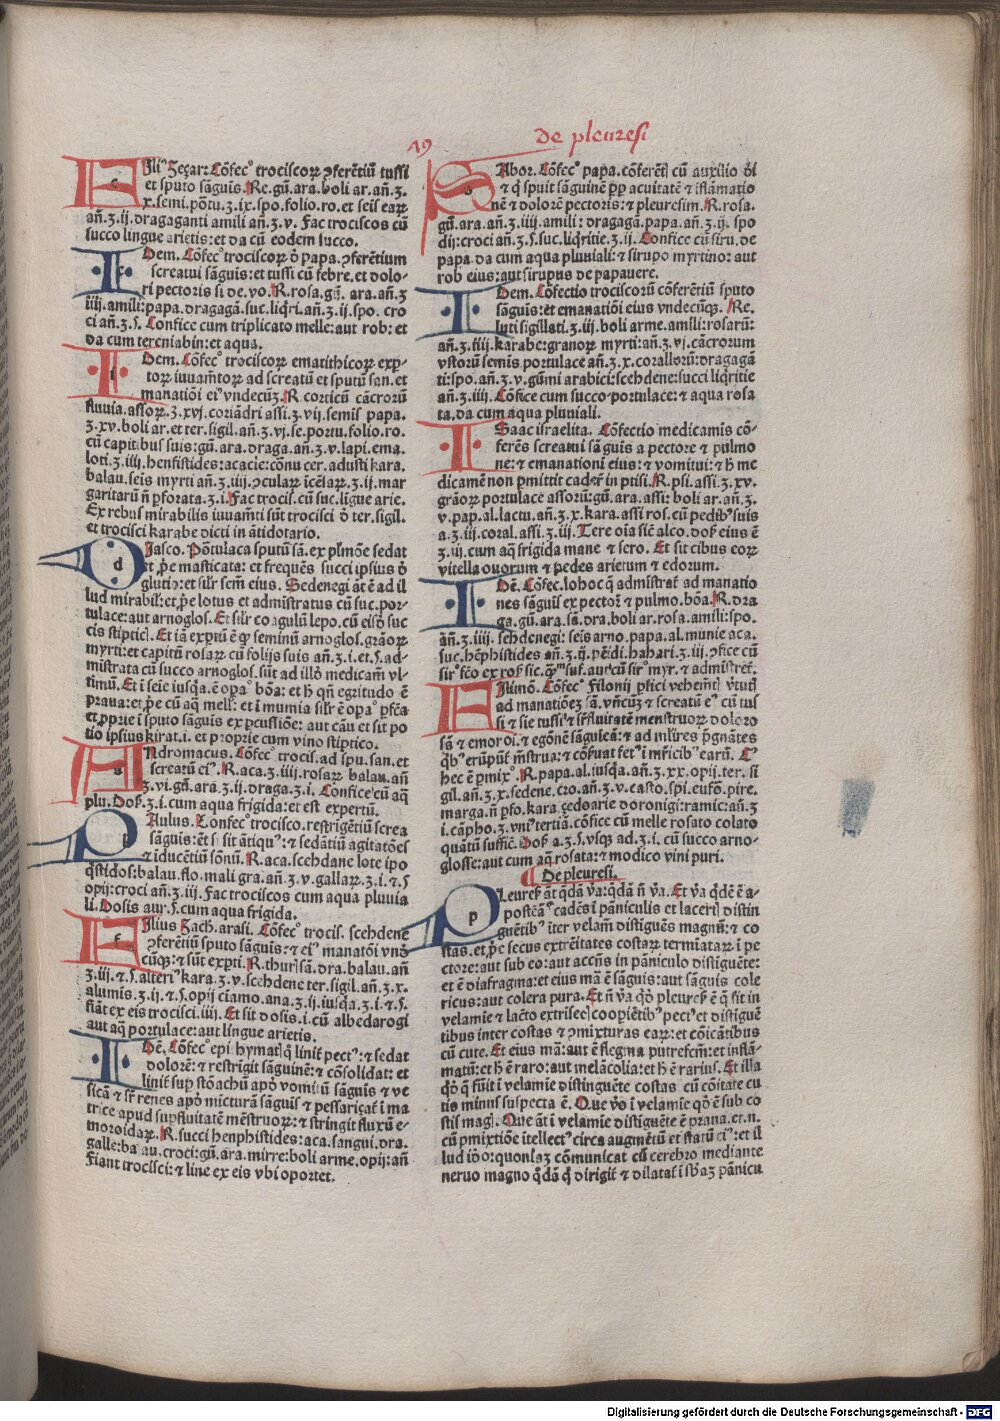 19
De pleuresi
Ili⁹ Zeçar. Cōfec⁹ trociscoꝝ ꝯferētiū tussi
et sputo sāguis. Re. gū. ara. boli ar. an̄. ʒ.
x. semi. pōtu. ʒ. ix. spo. folio. ro. et seis eaꝝ
an̄. ʒ. ij. dragaganti amili an̄. ʒ. v. Fac trociscos cū
succo lingue arietis: et da cū eodem succo.
Dem. Cōfec⁹ trociscoꝝ ō papa. ꝯferētium
screatui sāguis: et tussi cū febre. et dolo-
ri pectoris si de. vo. R. rosa. gū. ara. an̄. ʒ
iiij. amili: papa. dragagā. suc. liq̄ri. an̄. ʒ. ij. spo. cro
ci an̄. ʒ. s. Confice cum triplicato melle: aut rob: et
da cum tereniabin: et aqua.
Dem. Cōfec⁹ trociscoꝝ ematithicoꝝ exp-
toꝝ iuuam̄toꝝ ad screatū et sputū san. et
manatiōi ei⁹ vndecūʒ. R. corticū cācrorū
fluuia. assoꝝ. ʒ. xvj. coriādri assi. ʒ. vij. semis papa.
ʒ. xv. boli ar. et ter. sigil. an̄. ʒ. vj. se. portu. folio. ro.
cū capitibus suis: gū. ara. draga. an̄. ʒ. v. lapi. ema.
loti. ʒ. iiij. henfistides: acacie: cōnu cer. adusti kara.
balau. seis myrti an̄. ʒ. iiij. ꝯculaꝝ icēlaꝝ. ʒ. ij. mar
garitarū n̄ ꝑforata. ʒ. i. Fac trocis. cū suc. ligue arie.
Ex rebus mirabilis iuuam̄ti sūt trocisci ō ter. sigil.
et trocisci karabe dicti in ātidotario.
Jasco. Pōtulaca sputū sā. ex plmōe sedat
et ꝓe masticata: et frequēs succi ipsius ō
glutio: et silr sem̄ eius. Sedenegi āt ē ad il
lud mirabil: et ꝓe lotus et admistratus cū suc. por-
tulace: aut arnoglos. Et silr coagulū lepo. cū eisdō suc
cis stiptic. Et iā exptū ē ꝙ seminū arnoglos. grāoꝝ
myrti: et capitū rosaꝝ cū folijs suis an̄. ʒ. i. et. s. ad-
mistrata cū succo arnoglos. sūt ad illō medicam̄ vl-
timū. Et i seie iusqa. ē opa⁹ bōa: et h̄ qn̄ egritudo ē
praua: et ꝓe cū aq̄ mell: et i mumia silr ē opa⁹ ꝑfca
et ꝓprie i sputo sāguis ex ꝑcussiōe: aut cāu et sit po
tio ipsius kirat. i. et proprie cum vino stiptico.
Ndromacus. Cōfec⁹ trocis. ad spu. san. et
screatū ei⁹. R. aca. ʒ. iiij. rosaꝝ balau. an̄
ʒ. vi. gū. ara. ʒ. ij. draga. ʒ. i. Confice cū aq̄
plu. Dos̄. ʒ. i. cum aqua frigida: et est expertū.
Aulus. Confec⁹ trocisco. restrigētiū screa
sāguis: ēt si sit ātiqu⁹: et sedātiū agitatōes
⁊ iducētiū sōnū. R. aca. scehdane lote ipo
q̄stidos: balau. flo. mali gra. an̄. ʒ. v. gallaꝝ. ʒ. i. ⁊. s
opij: croci an̄. ʒ. iij. Fac trociscos cum aqua pluuia
li. Dosis aur. s. cum aqua frigida.
Ilius Zach. arasi. Cōfec⁹ trocis. scehdene
ꝯferētiū sputo sāguis: ⁊ ei⁹ manatōi vnō
cūqʒ: ⁊ sūt expti. R. thuris ā. dra. balau. an̄
ʒ. iij. ⁊. s. alteri⁹ kara. ʒ. v. scehdene ter. sigil. an̄. ʒ. x.
alumis. ʒ. ij. ⁊. s. opij ciamo. ana. ʒ. ij. iusq̄a. ʒ. i. ⁊. s.
fiāt ex eis trocisci. iiij. Et sit dosis. i. cū albedarogi
aut aq̄ portulace: aut lingue arietis.
Dē. Cōfec⁹ epithymat q̄ linit̄ pect⁹: ⁊ sedat
dolorē: ⁊ restrīgit sāguinē: ⁊ cōsolidat: et
linit̄ sup stōachū apō vomitū sāguis ⁊ ve
sicā ⁊ sr̄ renes apō micturā sāguis ⁊ pessariçat̄ i ma
trice apud supfluitatē mēstruoꝝ: ⁊ stringit fluxū e-
moroidaꝝ. R. succi henphistides: aca. sangui. dra.
galle: balau. croci: gū. ara. mirre: boli arme. opij: an̄
Fiant trocisci: ⁊ line ex eis vbi oportet.
Abor. Cōfec⁹ papa. cōferēti cū auxilio ōi
⁊ q̄ spuit sāguinē ꝓp acuitatē ⁊ iflāmatio
nē ⁊ dolorē pectoris: ⁊ pleuresim. R. rosa.
gū. ara. an̄. ʒ. iiij. amili: dragagā. papa. an̄. ʒ. ij. spo
dij: croci an̄. ʒ. s. suc. liq̄ritie. ʒ. ij. Confice cū siru. de
papa. da cum aqua pluuiali: ⁊ sirupo myrtino: aut
rob eius: aut sirupus de papauere.
Dem. Cōfectio trociscorū cōferētiū sputo
sāguis: et emanatiōi eius vndecūqʒ. Re.
luti sigillati. ʒ. iij. boli arme. amili: rosarū:
an̄. ʒ. iiij. karabe: granoꝝ myrti: an̄. ʒ. vj. cācrorum
vstorū semis portulace an̄. ʒ. x. corallorū: dragagā
ti: spo. an̄. ʒ. v. gūmi arabici: scehdene: succi liq̄ritie
an̄. ʒ. iiij. Cōfice cum succo portulace: ⁊ aqua rosa
ta. da cum aqua pluuiali.
Saac israelita. Cōfectio medicamis cō-
ferēs screatui sāguis a pectore ⁊ pulmo
ne: ⁊ emanationi eius: ⁊ vomitui: ⁊ h̄ me
dicamē non ꝑmittit cader̄ in ptisi. R. psi. assi. ʒ. xv.
grāoꝝ portulace assorū: gū. ara. assi: boli ar. an̄. ʒ.
v. pap. al. lactu. an̄. ʒ. x. kara. assi ros. cū pedib⁹ suis
a. ʒ. iij. coral. assi. ʒ. iij. Tere oia sic̄ alco. dos̄ eius ē
ʒ. iij. cum aq̄ frigida mane ⁊ sero. Et sit cibus eoꝝ
vitella ouorum ⁊ pedes arietum ⁊ edorum.
Dē. Cōfec. lohoc q̄ admistrat̄ ad manatio
nes sāguis ex pector̄ ⁊ pulmo. bōa. R. dra
ga. gū. ara. sā. dra. boli ar. rosa. amili: spo.
an̄. ʒ. iiij. sehdenegi: seis arno. papa. al. munie aca.
suc. hēphistides an̄. ʒ. ij. pēidi. hahari. ʒ. iij. ꝯfice cū
sir⁹ fcō ex ros̄ sic. q̄ꝫ suf. aut cū sir⁹ myr. ⁊ admistret̄.
Ilimō. Cōfec⁹ Filonij ꝑsici vehemēt̄ v̄tuti
ad manatiōeʒ sā. vn̄cūʒ ⁊ screatū e⁹ cū tus
si ⁊ sie tussi ⁊ sr̄fluitatē menstruoꝝ doloro
sā ⁊ emoroi. ⁊ egōnē sāguicā: ⁊ ad mlir̄es p̄gnātes
q̄b⁹ erūpūt̄ mēstrua: ⁊ cōseruat fet⁹ i mr̄icib⁹ earū. C⁹
hec ē ꝑmix⁹. R. papa. al. iusqa. an̄. ʒ. xx. opij. ter. si
gil. an̄. ʒ. x. sedene. cro. an̄. ʒ. v. casto. spi. eufō. pire.
marga. n̄ ꝑfo. kara. çedoarie doronigi: ramic: an̄. ʒ
i. capho. ʒ. vni⁹ tertiā. cōfice cū melle rosato colato
quātū suffic̄. Dos̄ a. ʒ. s. vsqʒ ad. ʒ. i. cū succo arno-
glosse: aut cum aq̄ rosata: ⁊ modico vini puri.
¶ De pleuresi.
Leures̄ āt q̄dā v̄a: q̄dā n̄ v̄a. Et v̄a q̄dē ē a-
postēa⁹ cadēs i pāniculis et lacertis distin
guētib⁹ iter velam̄ distiguēs magnū: ⁊ co
stas. et ꝓe secus extrēitates costaꝝ termiataꝝ i pe
ctore: aut sub eo: aut accn̄s in pāniculo distiguēte:
et ē diafragma: et eius mā ē sāguis: aut sāguis cole
ricus: aut colera pura. Et n̄ v̄a qdō pleures̄ ē q̄ sit in
velamie ⁊ lac̄to extrisec̄ coopietib⁹ pect⁹ et distiguē
tibus inter costas ⁊ ꝯmixturas eaꝝ: et cōicātibus
cū cute. Et eius mā: aut ē flegma putrefcm̄: et inflā-
matū: et h̄ ē raro: aut melācolia: et h̄ ē rarius. Et illa
qdō q̄ fuit i velamie distinguēte costas cū cōitate cu
tis minus suspecta ē. Que v̄o i velamie q̄ ē sub co
stis mag. Que āt i velamie distiguēte ē praua. et. n.
cū ꝑmixtiōe itellect⁹ circa augmētū et statū ei⁹: et il
lud iōo: quoniaʒ cōmunicat cū cerebro mediante
neruo magno q̄dā q̄ dirigit̄ ⁊ dilatat̄ i ip̄aʒ pānicu
Digitalisierung gefördert durch die Deutsche Forschungsgemeinschaft - DFG